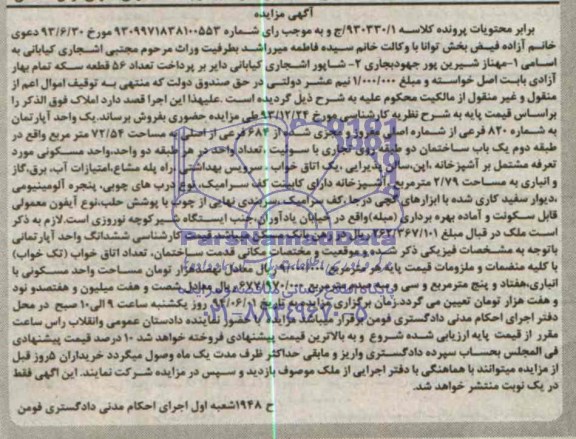 آگهی مزایده
برابر محتویات پرونده کلاسه ۹۳۰۳۳۰/۱/ج و به موجب رای شماره ۹۳۰۹۹۷۱۸۳۸۱۰۰۵۵۳ مورخ ۹۳/۶/۳۰ دعوی
خانم آزاده فیض بخش توانا با وکالت خانم سیده فاطمه میررائد بطرفیت وراث مرحوم مجتبی اشجاری کیابانی به
اسامی ۱-مهناز شیرین پور جهودبجاری ۲- شاپور اشجاری کیابانی دایر بر پرداخت تعداد ۵۶ قطعه سکه تمام بهار
آزادی بابت اصل خواسته و مبلغ ۱/۰۰۰/۰۰۰ نیم عشر دولتی در حق صندوق دولت که منتهی به توقیف اموال اعم از
منقول و غیر منقول از مالکیت محکوم علیه به شرح ذیل گردیده است .علیهذا این اجرا قصد دارد املاک فوق الذکر را
براساس قیمت پایه به شرح نظریه کارشناسی مورخ ۹۳/۱۲/۲۴ طی مزایده حضوری بفروش برساند.یک واحد آپارتمان
به شماره ۸۲۰ فرعی از شماره اصلی مفروز و مجزی شده از ۶۸۴ فرعی از اصلی به مساحت ۷۲/۵۴ متر مربع واقع در
طبقه دوم یک باب ساختمان دو طبقه روی تجاری با سوئیت ،تعداد واحد در هر طبقه دو واحد،واحد مسکونی مورد
تعرفه مشتمل بر آشپزخانه ،اپن،سالن پذیرایی ،یک اتاق خواب ،سرویس بهداشتی،راه پله مشاع،امتیازات آب، برق،گاز
و انباری به مساحت ۲/۷۹ مترمربع، آشپزخانه دارای کابینت کف سرامیک،نوع درب های چوبی، پنجره آلومینیومی
،دیوار سفید کاری شده با ابزارهای گچی درجا ،کف سرامیک ،سربندی نهایی از چوب با پوشش حلب،نوع آیفون معمولی
قابل سکونت و آماده بهره برداری (مبله)واقع در خیابان یادآوران،جنب ایستگاه مسیر کوچه نوروزی است.لازم به ذکر
است ملک در قبال مبلغ ۲۶۲/۳۶۷/۱۰۱ ریال در رهن بانک مسکن میباشد قیمت کارشناسی ششدانگ واحد آپارتمانی
باتوجه به مشخصات فیزیکی ذکر شده و موقعیت و مختصات مکانی قدمت ساختمان، تعداد اتاق خواب (تک خواب)
با کلیه منضمات و ملزومات قیمت پایه هر مترمربع ریال معادل هزار تومان مساحت واحد مسکونی با
انباری،هفتاد و پنج مترمربع و سی و سه صدم مترمربع ریال معادل شصت و هفت میلیون و هفتصدو نود
و هفت هزار تومان تعیین می گردد.زمان برگزاری مزایده به تاریخ ۹۴/۰۶/۰۱ روز یکشنبه ساعت ۹ الی۱۰ صبح در محل
دفتر اجرای احکام مدنی دادگستری فومن برقرار میباشد مزایده با حضور نماینده دادستان عمومی وانقلاب راس ساعت
مقرر از قیمت پایه ارزیابی شده شروع و به بالاترین قیمت پیشنهادی فروخته خواهد شد ۱۰ درصد قیمت پیشنهادی
فی المجلس بحساب سپرده دادگستری واریز و مابقی حداکثر ظرف مدت یک ماه وصول میگردد خریداران ۵روز قبل
از مزایده میتوانند با هماهنگی با دفتر اجرایی از ملک موصوف بازدید و سپس در مزایده شرکت نمایند. این آگهی فقط
در یک نوبت منتشر خواهد شد.
ح ۱۹۴۸شعبه اول اجرای احکام مدنی دادگستری فومن
ParsNamadData
۰۲۱-۸۸۳۴۹۶۷۰-۵